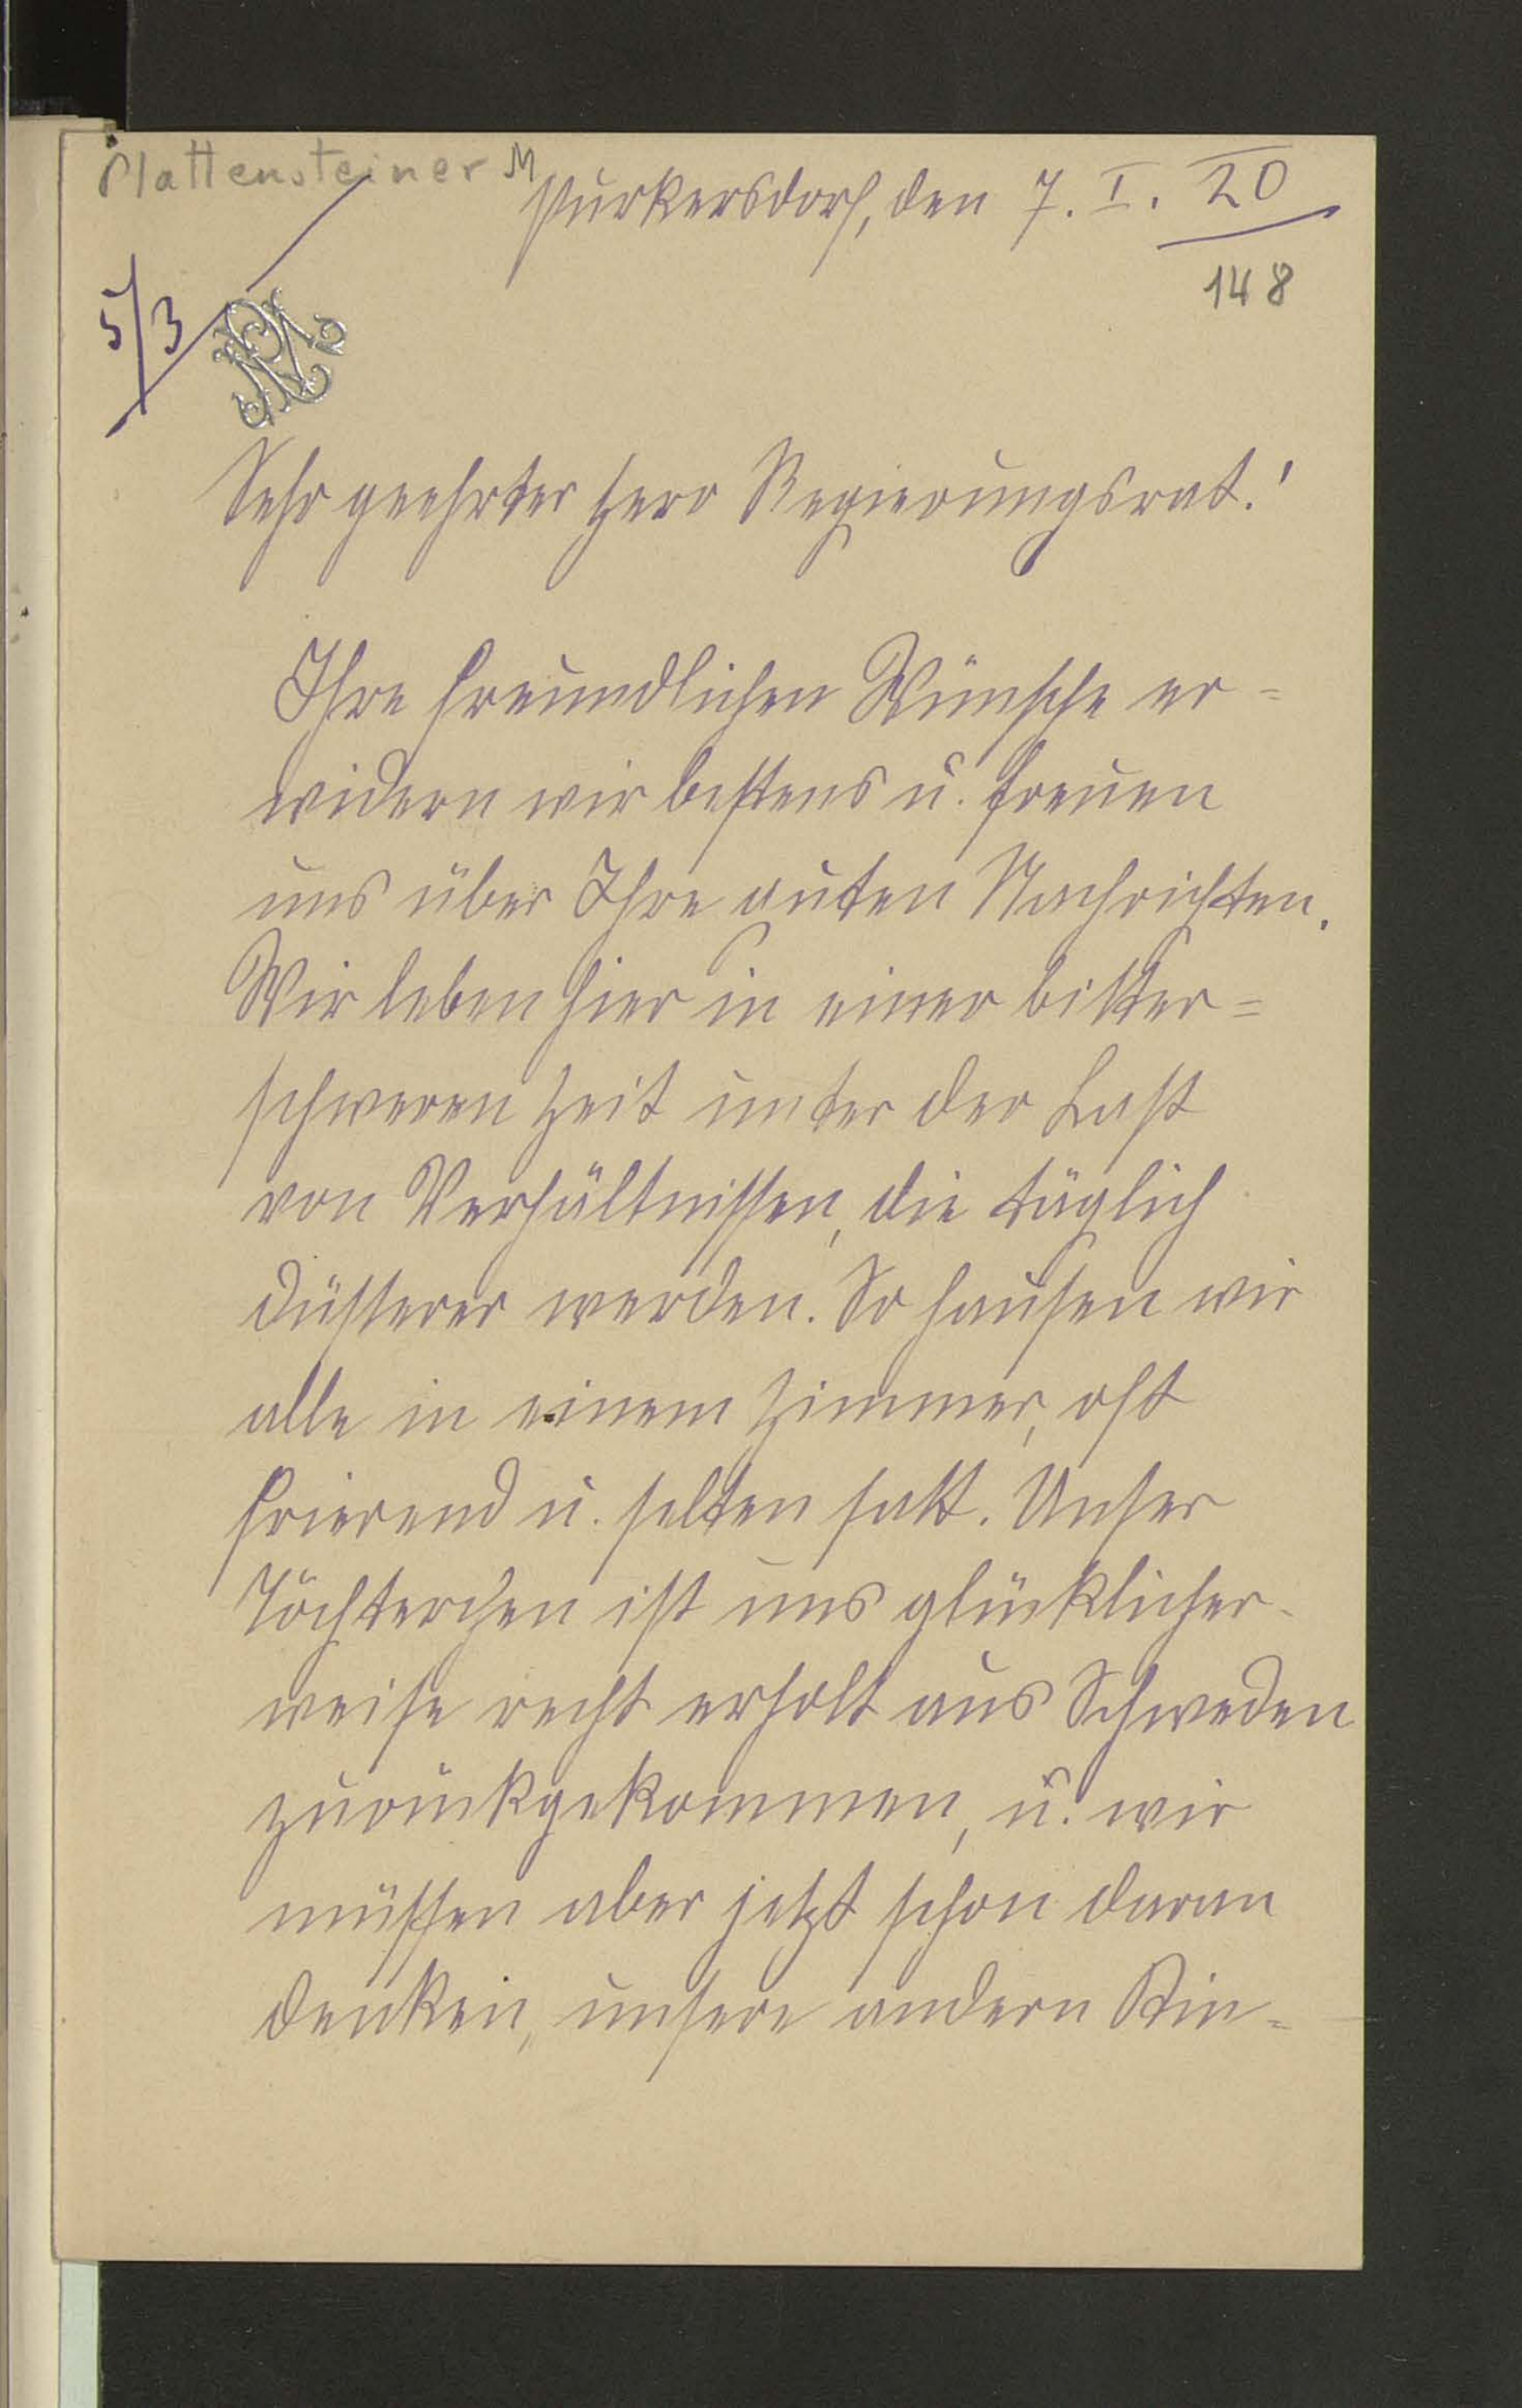 Plattensteiner M
Purkersdorf, den 7. I. 20
148
5/3
Sehr geehrter Herr Regierungsrat!
Ihre freundlichen Wünsche er=
widern wir bestens u. freuen
uns über Ihre guten Nachrichten.
Wir leben hier in einer bitter=
schweren Zeit unter der Last
von Verhältnissen, die täglich
düsterer werden. So hausen wir
alle in einem Zimmer, oft
frierend u. selten satt. Unser
Töchterchen ist uns glücklicher-
weise recht erholt aus Schweden
zurückgekommen, u. wir
müssen aber jetzt schon daran
denken, unsere andern Kin=